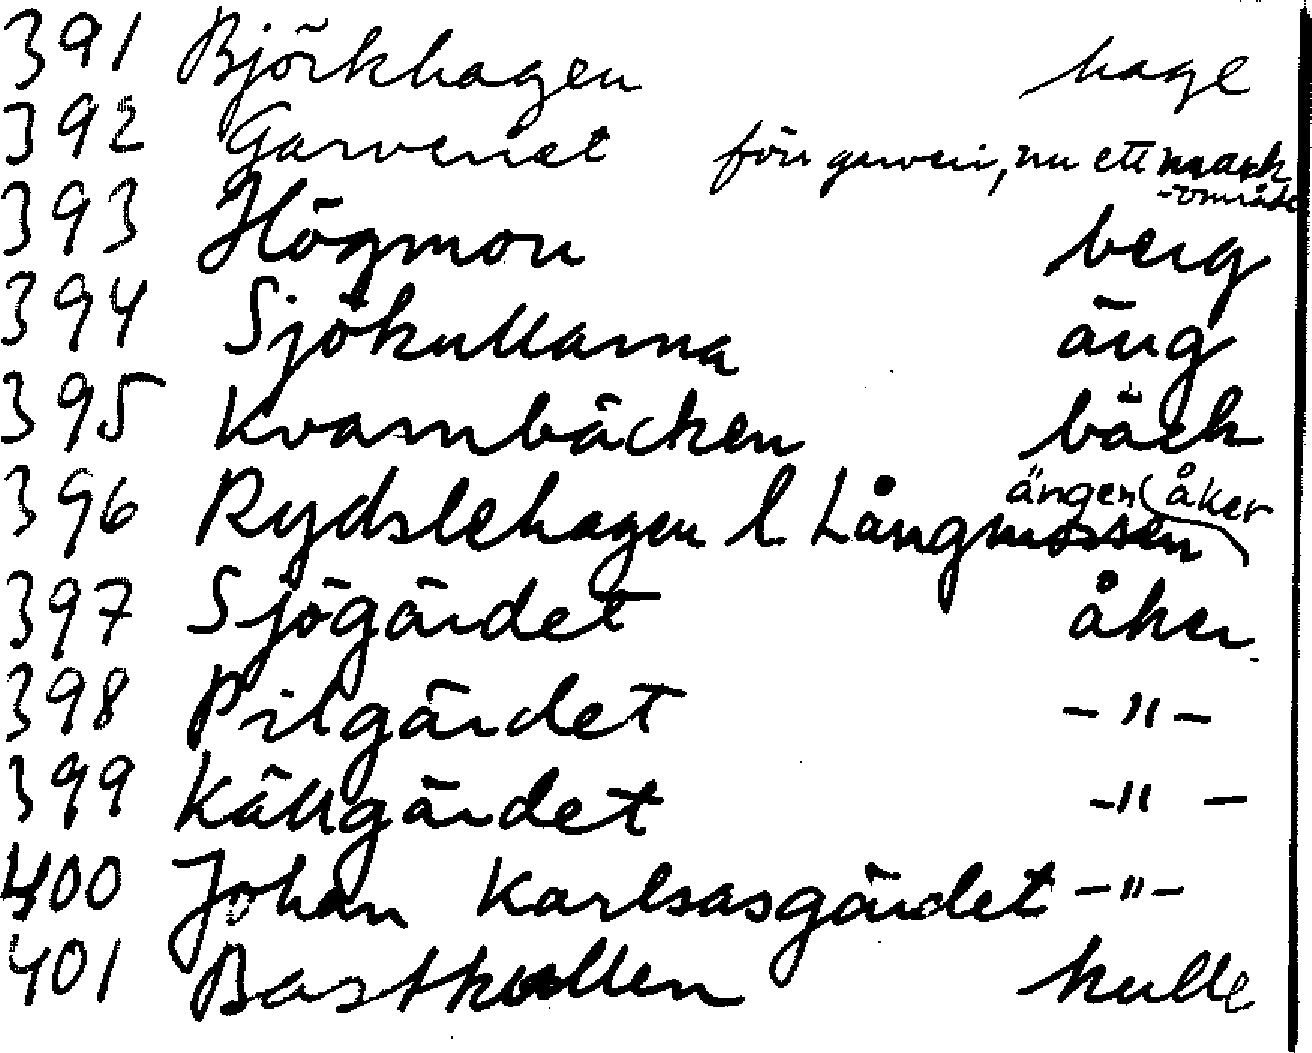 391 Björkhagen hage
392 Garveriet förr garveri, nu ett mark
-område
393 Högmon berg
394 Sjökullarna äng
395 Kvarnbäcken bäck
396 Rydslehagen l Långmossen ängen (åker)
397 Sjögärdet åker
398 Pilgärdet -"-
399 Källgärdet -"-
400 Johan Karlsasgärdet -"-
401 Bastkullen kulle